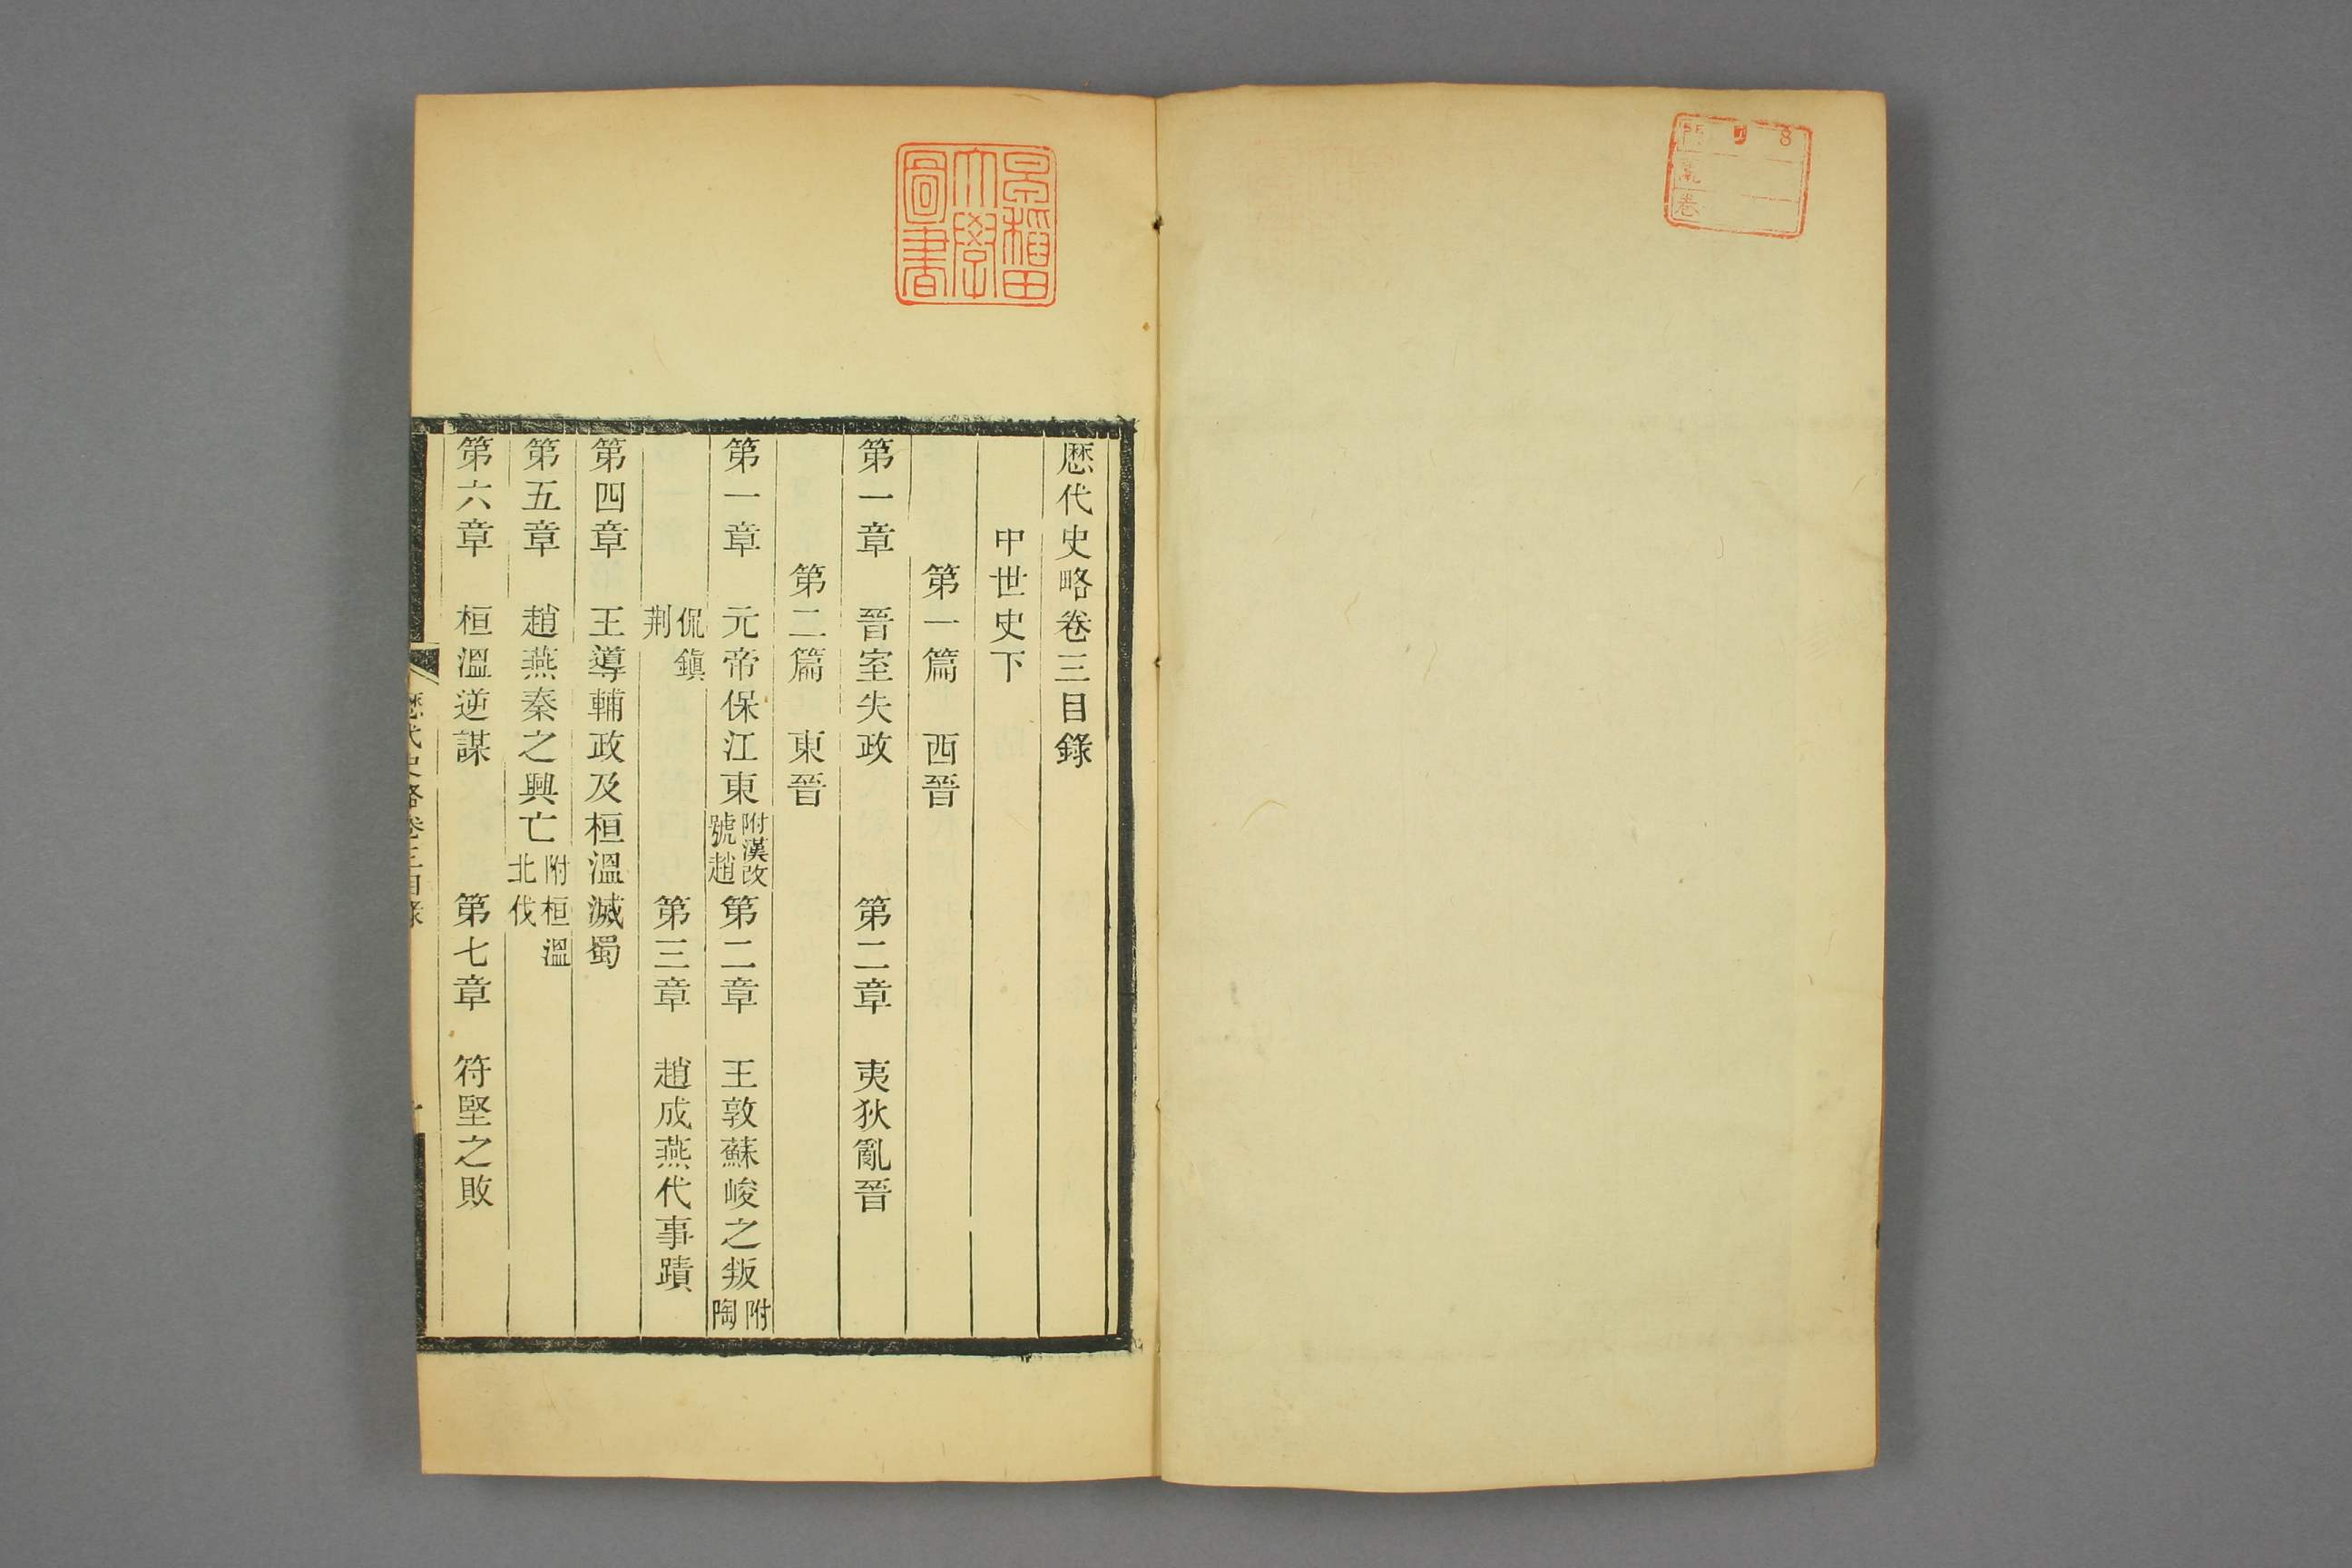 門 8
號
卷
早稲田
大學
圖書
歷代史略卷三目錄
中世史下
第一篇 西晉
第一章 晉室失政 第二章 夷狄亂晉
第二篇 東晉
第一章 元帝保江東附漢改號趙 第二章 王敦蘇峻之叛附陶
侃鎭荆 第三章 趙成燕代事蹟
第四章 王導輔政及桓溫滅蜀
第五章 趙燕秦之興亡附桓溫北伐
第六章 桓溫逆謀 第七章 符堅之敗
歷代史略卷三目錄